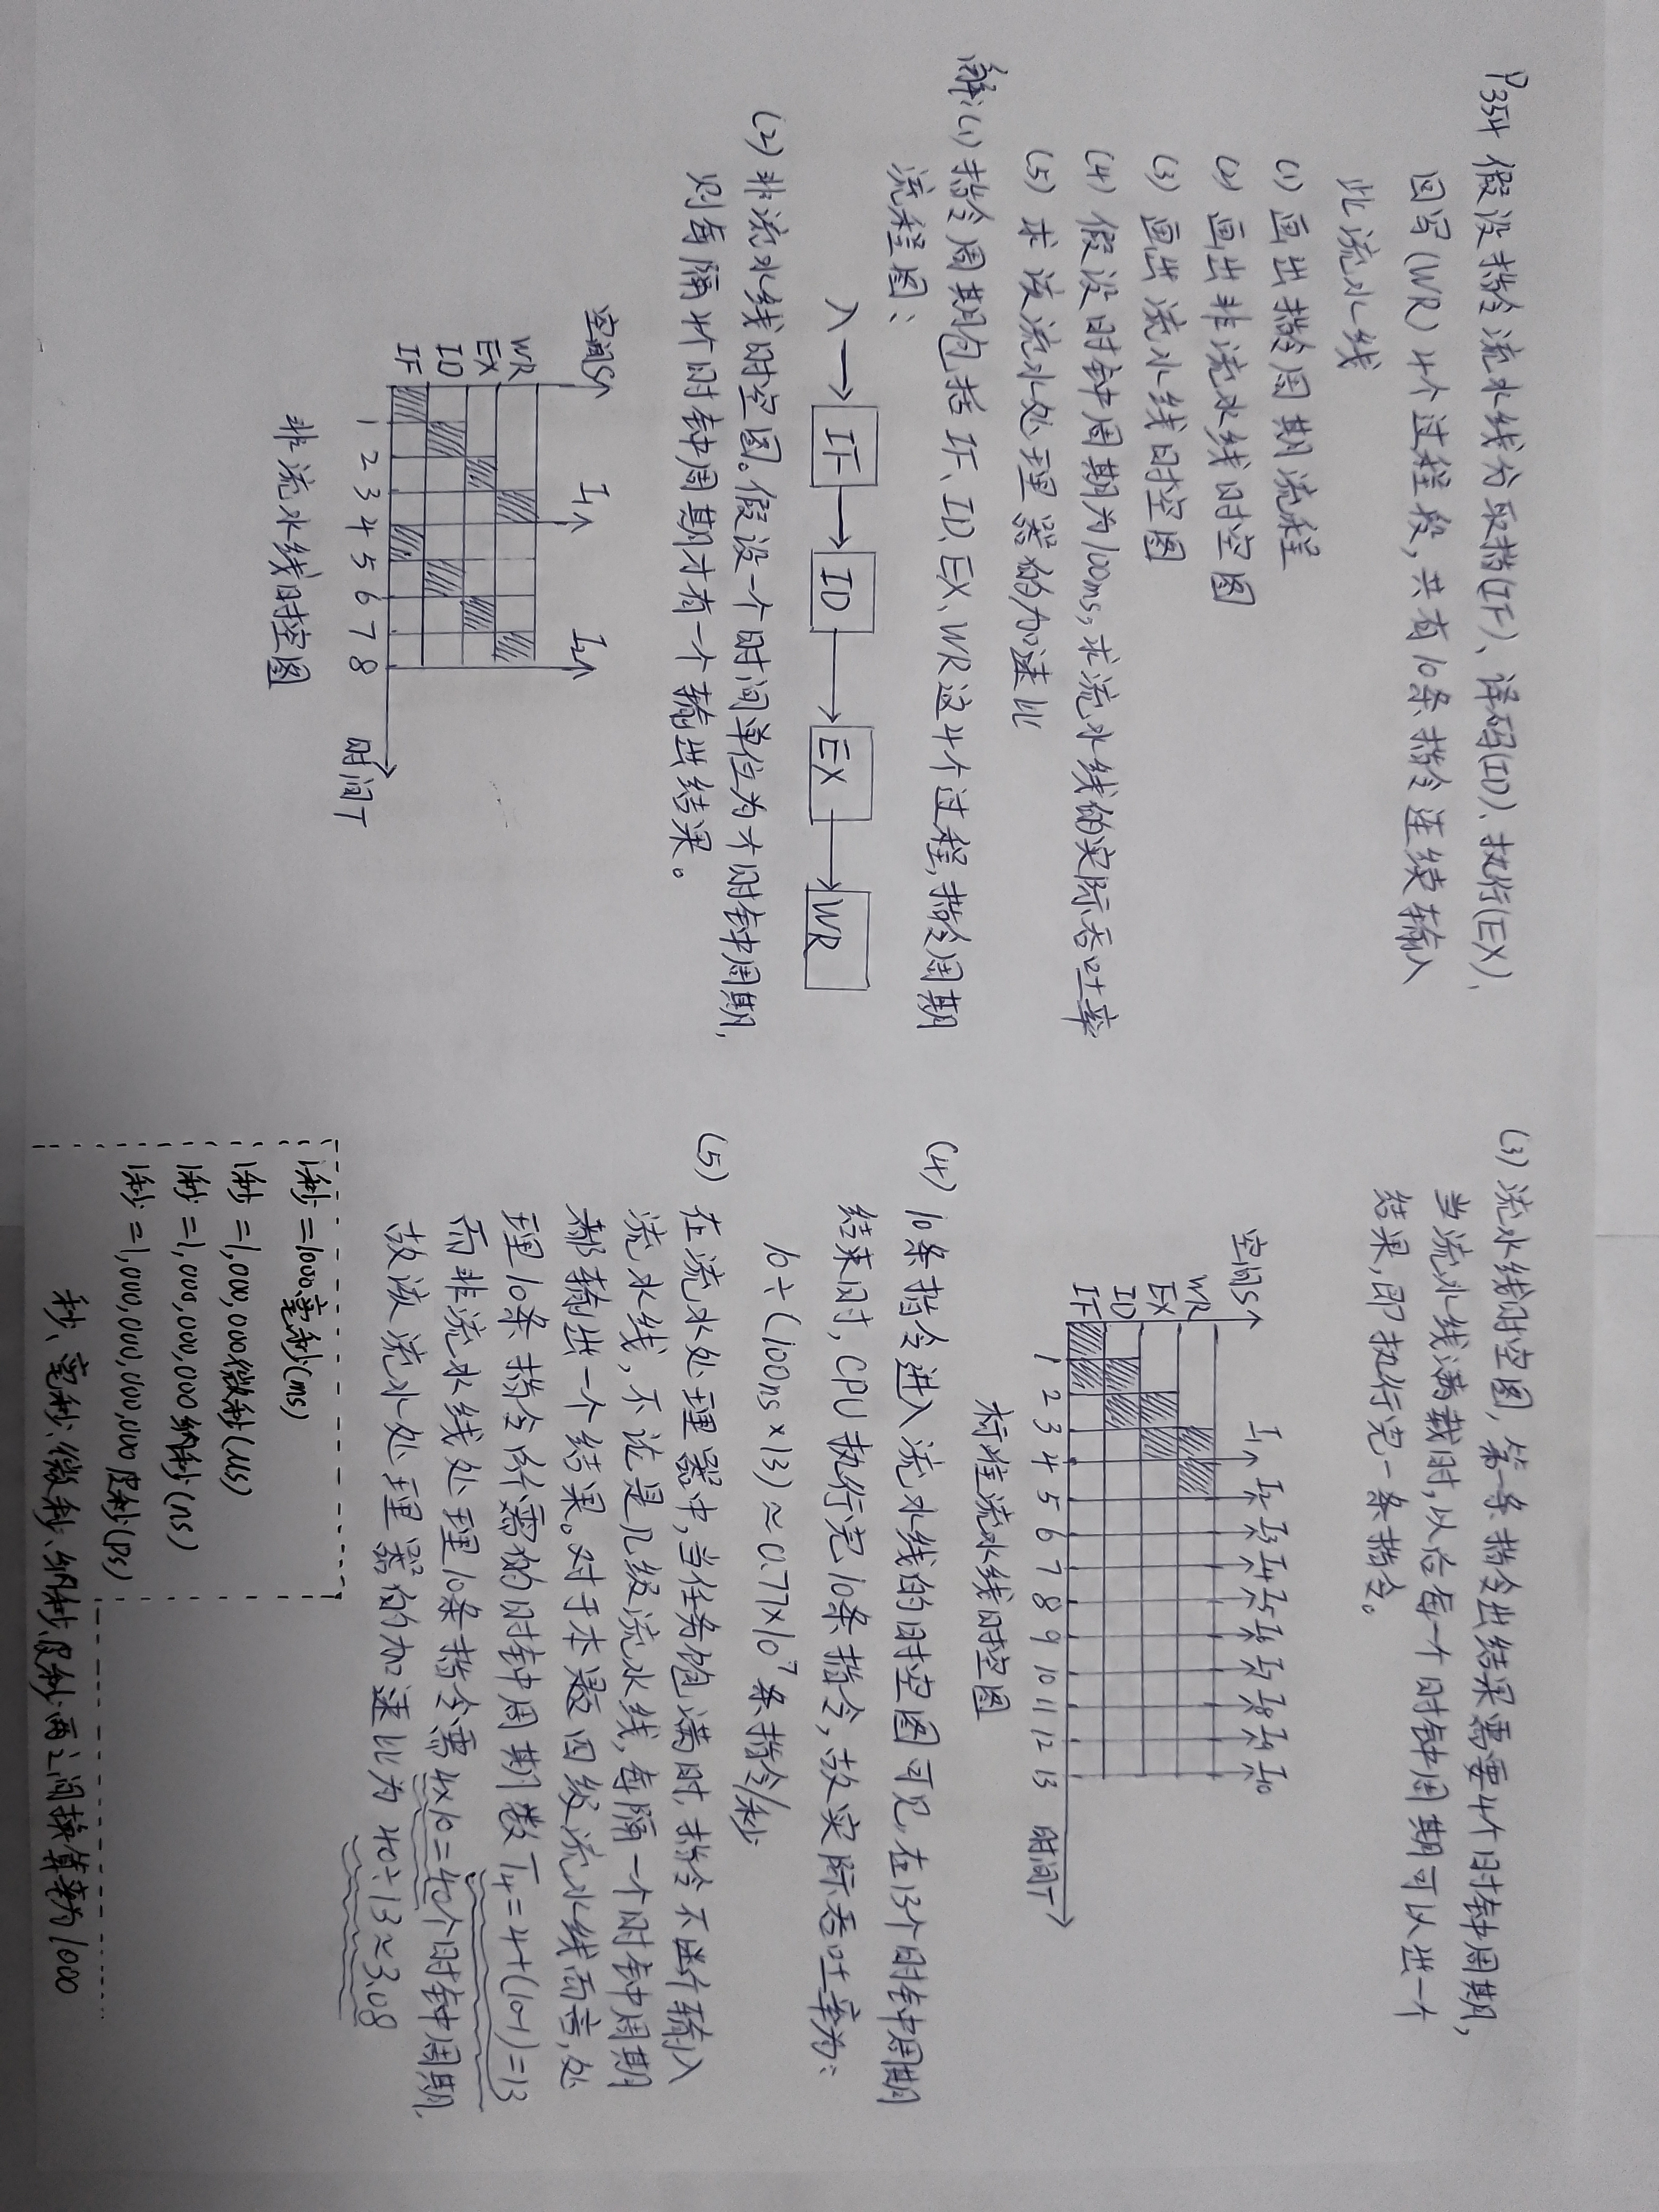 P354 假设指令流水线分取指(IF)、译码(ID)、执行(EX)、
回写(WR)4个过程段,共有10条指令连续输入
此流水线
(1) 画出指令周期流程
(2) 画出非流水线时空图
(3) 画出流水线时空图
(4) 假设时钟周期为100ms,求流水线的实际吞吐率
(5) 求该流水处理器的加速比
解:(1) 指令周期包括IF、ID、EX、WR这4个过程,指令周期
流程图:
入→IF→ID→EX→WR
(2) 非流水线时空图。假设一个时间单位为个时钟周期,
则每隔4个时钟周期才有一个输出结果。
空间S I1 I2
WR
EX
ID
IF
1 2 3 4 5 6 7 8 时间T
非流水线时空图
(3) 流水线时空图,第一条指令出结果需要4个时钟周期,
当流水线满载时,以后每一个时钟周期可以出一个
结果,即执行完一条指令。
空间S I1 I2 I3 I4 I5 I6 I7 I8 I9 I10
WR
EX
ID
IF
1 2 3 4 5 6 7 8 9 10 11 12 13 时间T
标准流水线时空图
(4) 10条指令进入流水线的时空图可见,在13个时钟周期
结束时,CPU执行完10条指令,故实际吞吐率为:
10÷(100ns×13)≈0.77×10⁷条指令/秒
(5) 在流水处理器中,当任务饱满时,指令不输入
流水线,不论是几级流水线,每隔一个时钟周期
都输出一个结果。对于本题四级流水线而言,处
理10条指令所需的时钟周期数T4=4+(10-1)=13
而非流水线处理10条指令需4×10=40个时钟周期,
故该流水处理器的加速比为40÷13≈3.08
1秒=1000毫秒(ms)
1秒=1,000,000微秒(μs)
1秒=1,000,000,000纳秒(ns)
1秒=1,000,000,000,000皮秒(ps)
秒、毫秒、微秒、纳秒、皮秒两之间换算率为1000